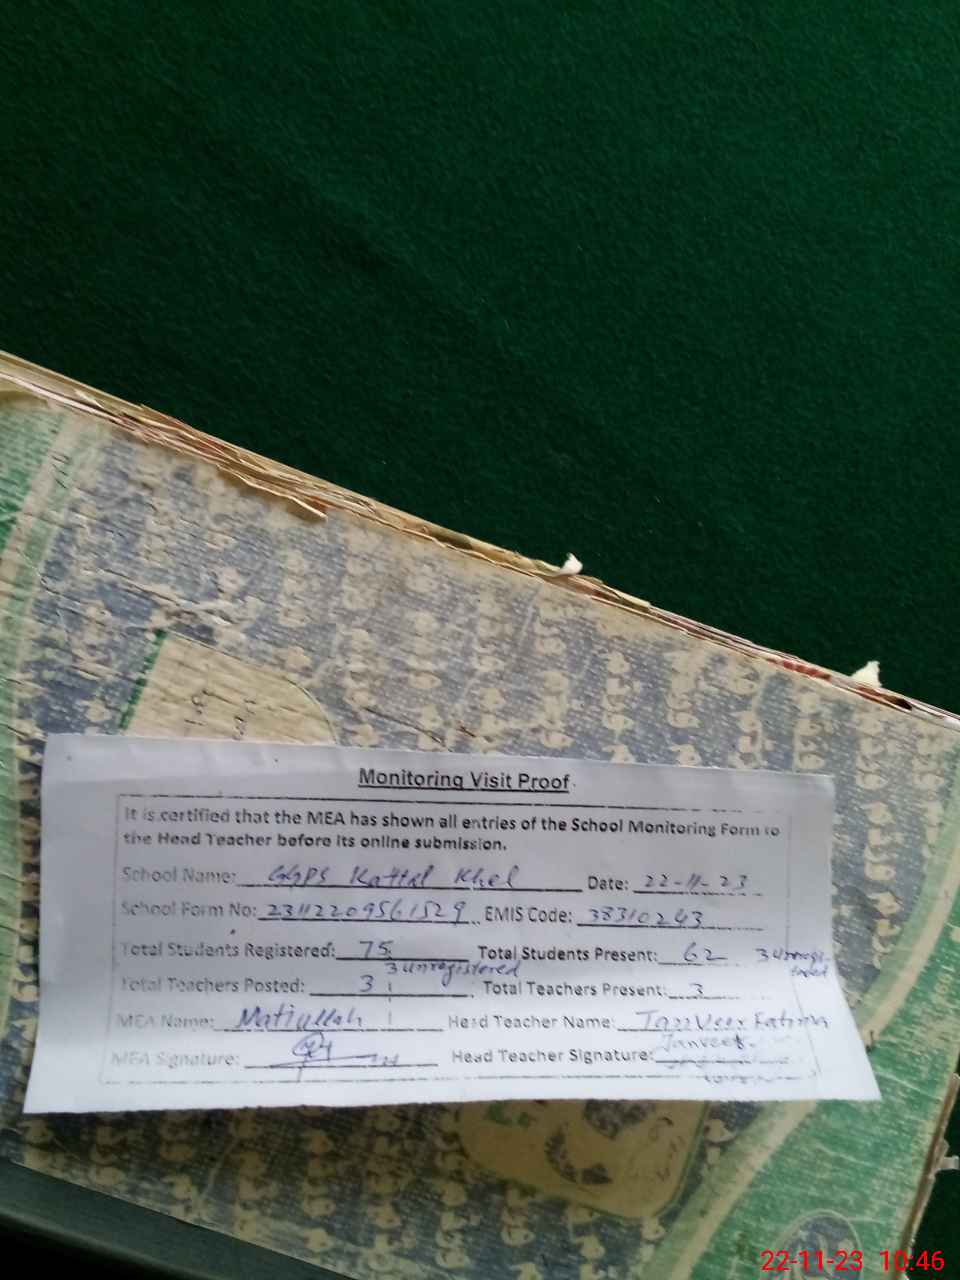 Monitoring Visit Proof
It is certified that the MEA has shown all entries of the School Monitoring Form to
the Head Teacher before its online submission.
School Name: GGPS Kattal Khel Date: 22-11-23
School Form No: 23112209561529 EMIS Code: 38310243
Total Students Registered: 75 Total Students Present: 62 3 unregistered
3 unregistered
Total Teachers Posted: 3 Total Teachers Present: 3
MEA Name: Matiullah Head Teacher Name: Tanveer Fatima
MEA Signature: Head Teacher Signature: Tanveer
22-11-23 10:46